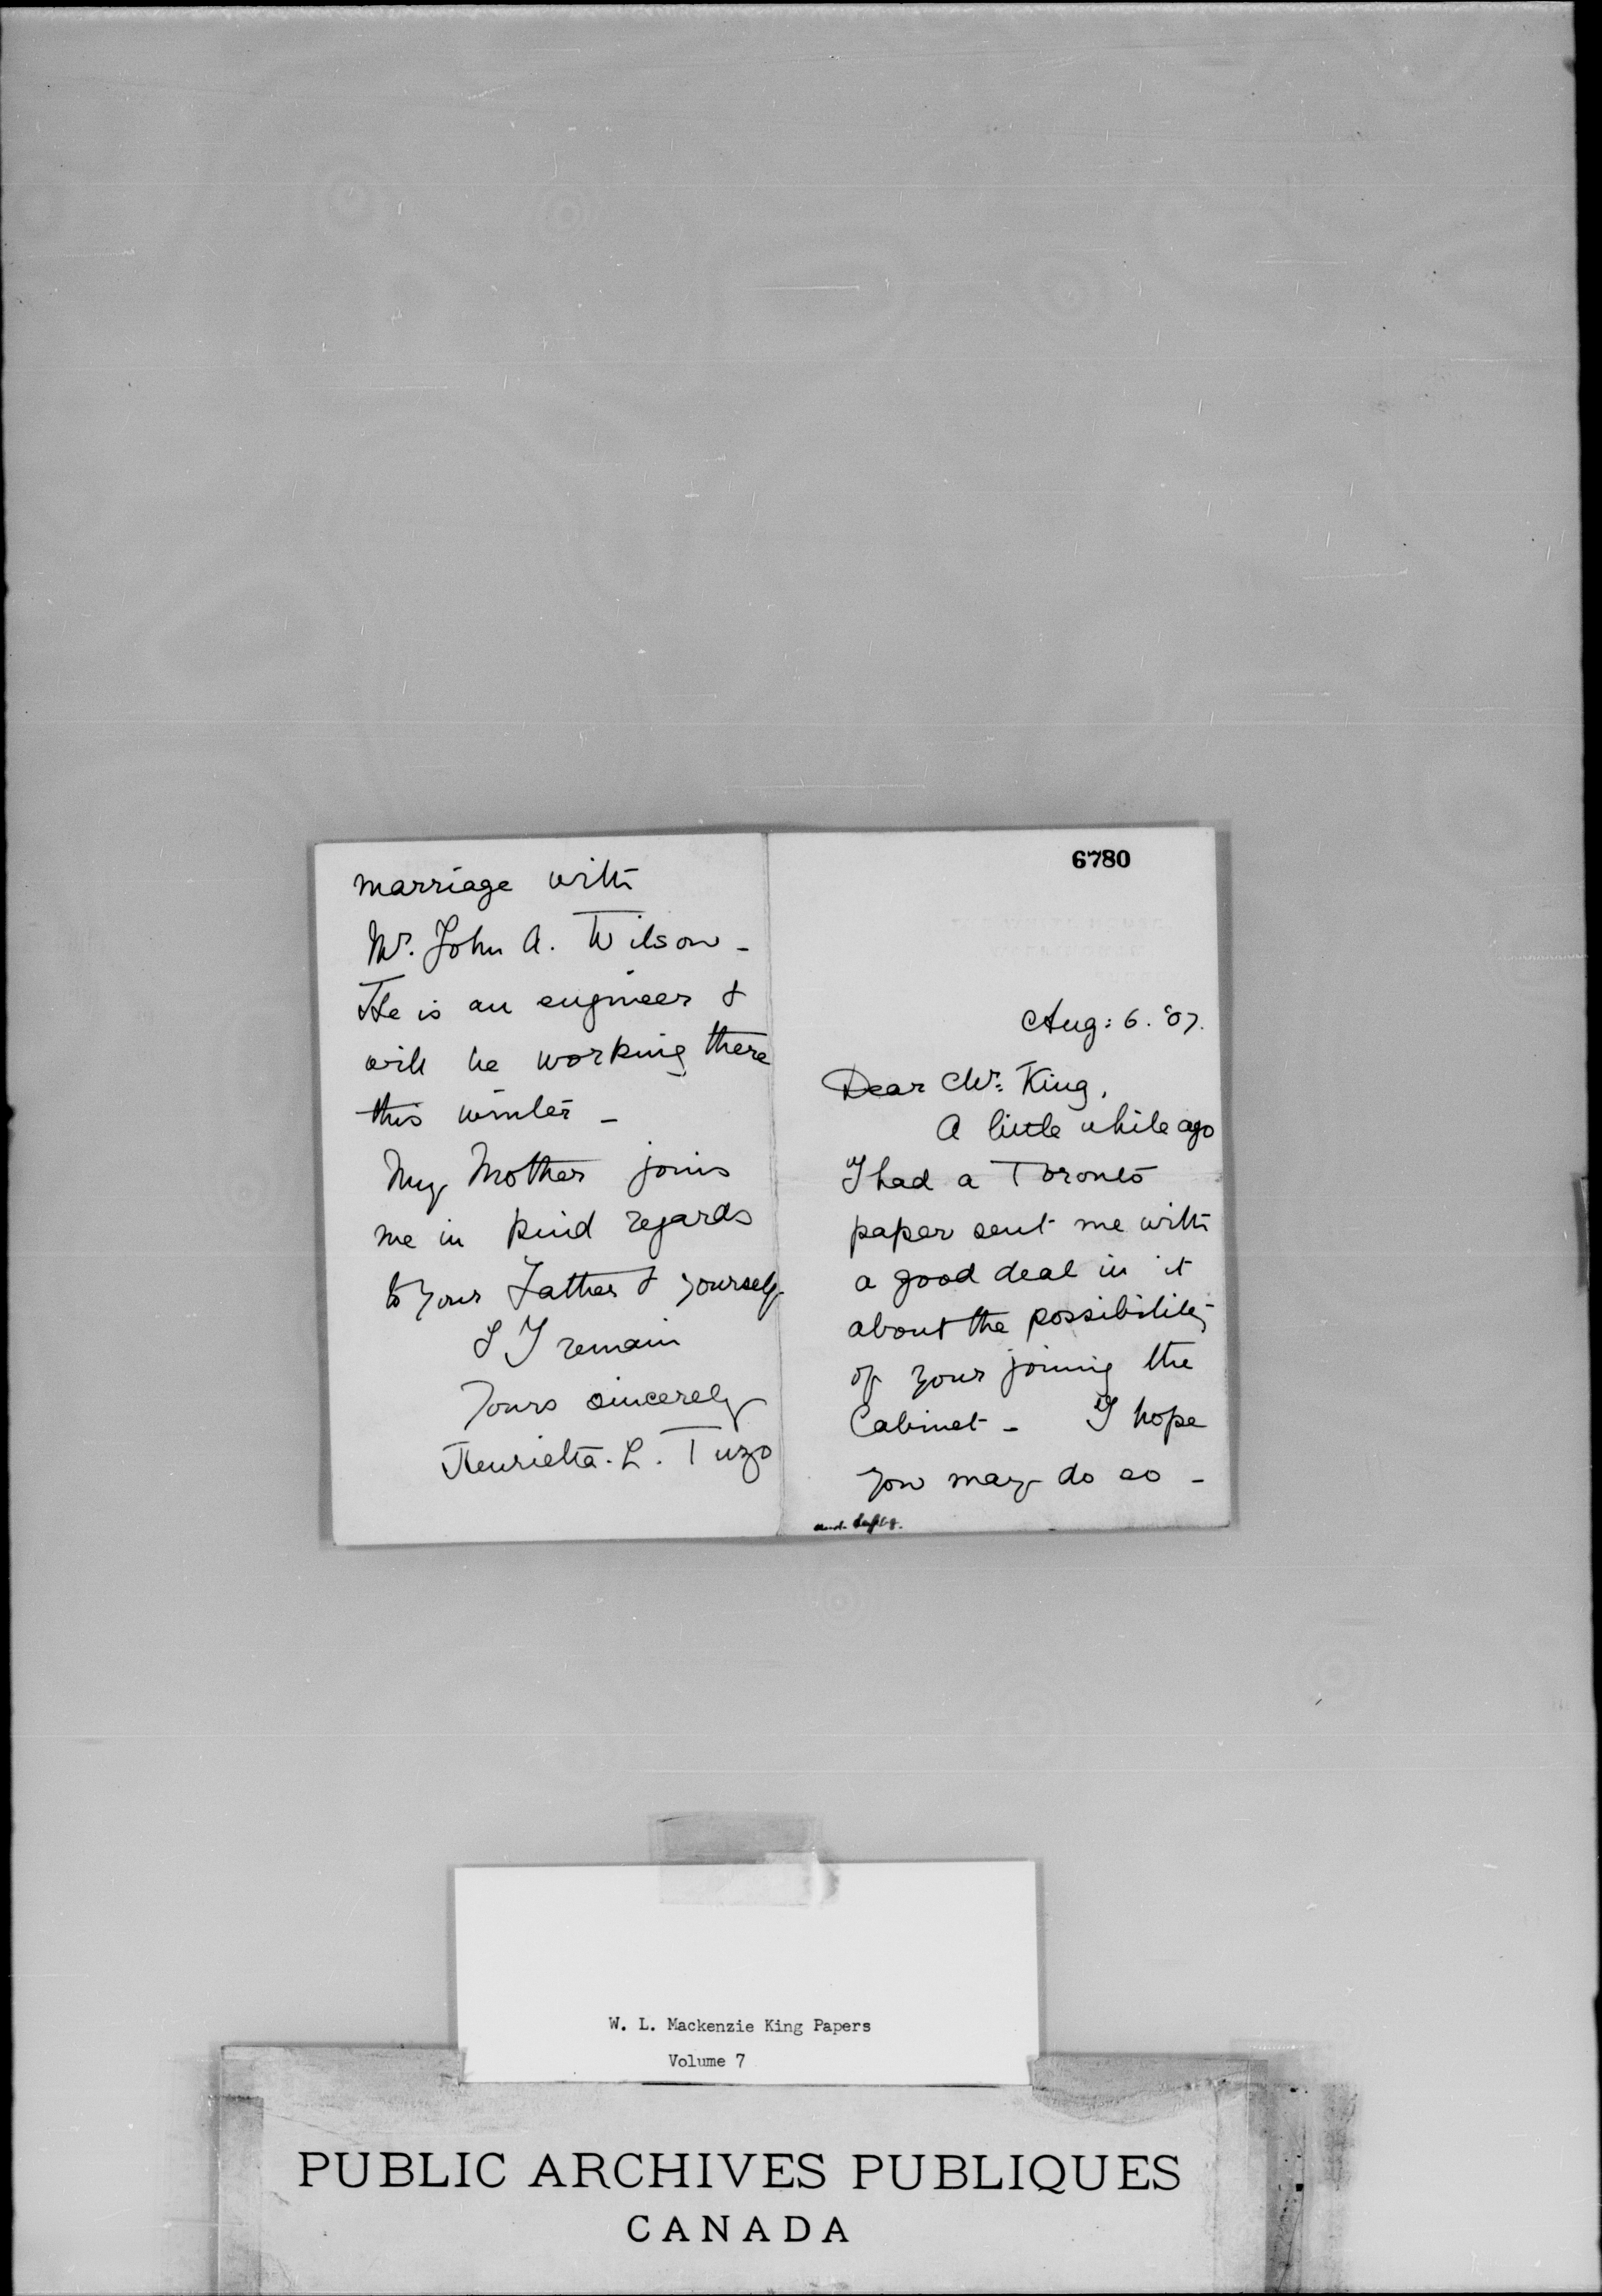 marriage with
Mr. John A. Wilson -
He is an engineer &
will be working there
this winter -
My Mother joins
me in kind regards
to your Father & yourself.
& I remain
Yours sincerely
Henrietta. L. Tuzo
6780
Aug: 6. '07.
Dear Mr: King,
A little while ago
I had a Toronto
paper sent me with
a good deal in it
about the possibility
of your joining the
Cabinet - I hope
you may do so -
W. L. Mackenzie King Papers
Volume 7
PUBLIC ARCHIVES PUBLIQUES
CANADA